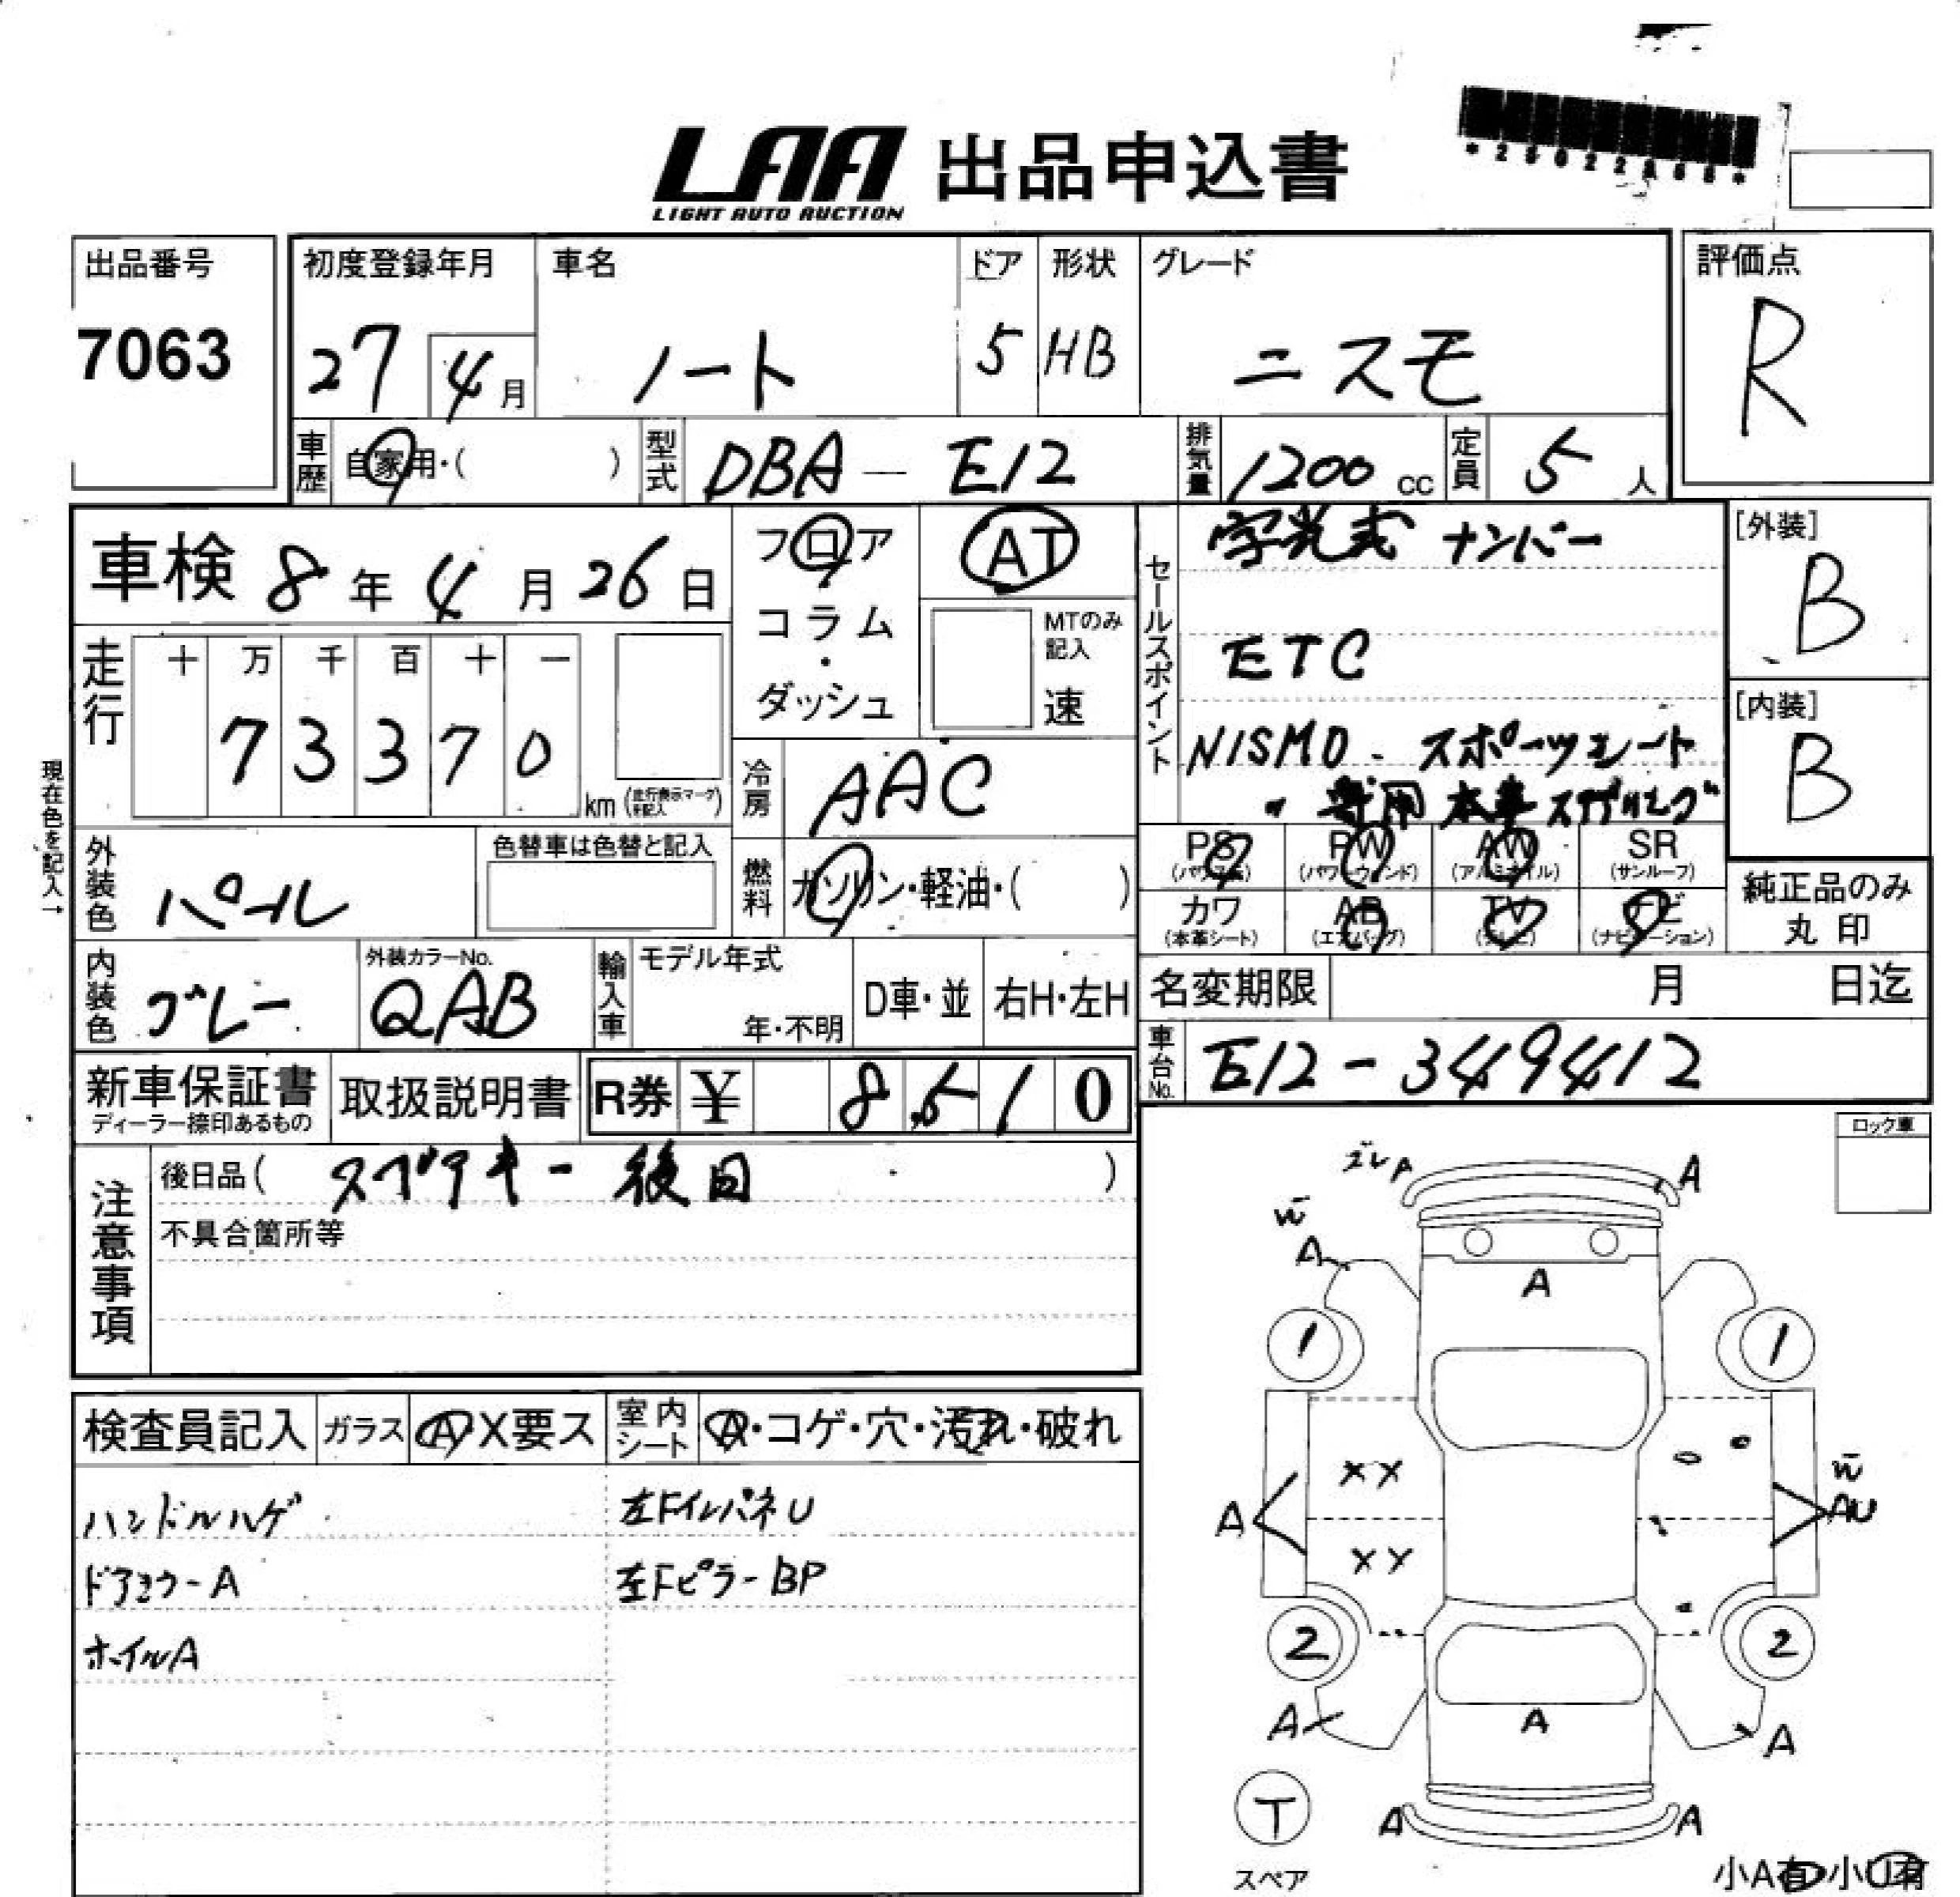 LAA 出品申込書
LIGHT AUTO AUCTION
出品番号 初度登録年月 車名 ドア 形状 グレード 評価点
7063 27 4月 ノート 5 HB ニスモ R
車歴 自家用・( ) 型式 DBA - E12 排気量 1200 cc 定員 5 人
車検 8年 4月 26日
フロア
コラム
・
ダッシュ
AT
MTのみ
記入
速
セールスポイント
字光式 ナンバー
ETC
NISMO - スポーツシート
専用 本革
[外装]
B
[内装]
B
走行
十 万 千 百 十 一
7 3 3 7 0 km
現在色を記入→
冷房 AAC
外装色 パール
色替車は色替と記入
燃料 ガソリン・軽油・( )
PS PW AW SR
(パワステ) (パワーウィンド) (アルミホイル) (サンルーフ)
カワ AB TV ナビ
(本革シート) (エアバッグ) (テレビ) (ナビゲーション)
純正品のみ
丸印
内装色 グレー
外装カラーNo.
QAB
輸入車
モデル年式
年・不明
D車・並 右H・左H
名変期限 月 日迄
車台No. E12-349412
新車保証書
ディーラー捺印あるもの
取扱説明書 R券 ¥ 8510
注意事項
後日品( スペアキー 後日 )
不具合箇所等
ロック車
検査員記入 ガラス A・X要ス 室内シート A・コゲ・穴・汚れ・破れ
ハンドルハゲ 左FインパネU
ドアミラーA 左Fピラー BP
ホイルA
ズレA A
W
A
A
1 1
XX
W
A AU
XX
2 2
A A A
T
スペア
A A
小A有・小U有